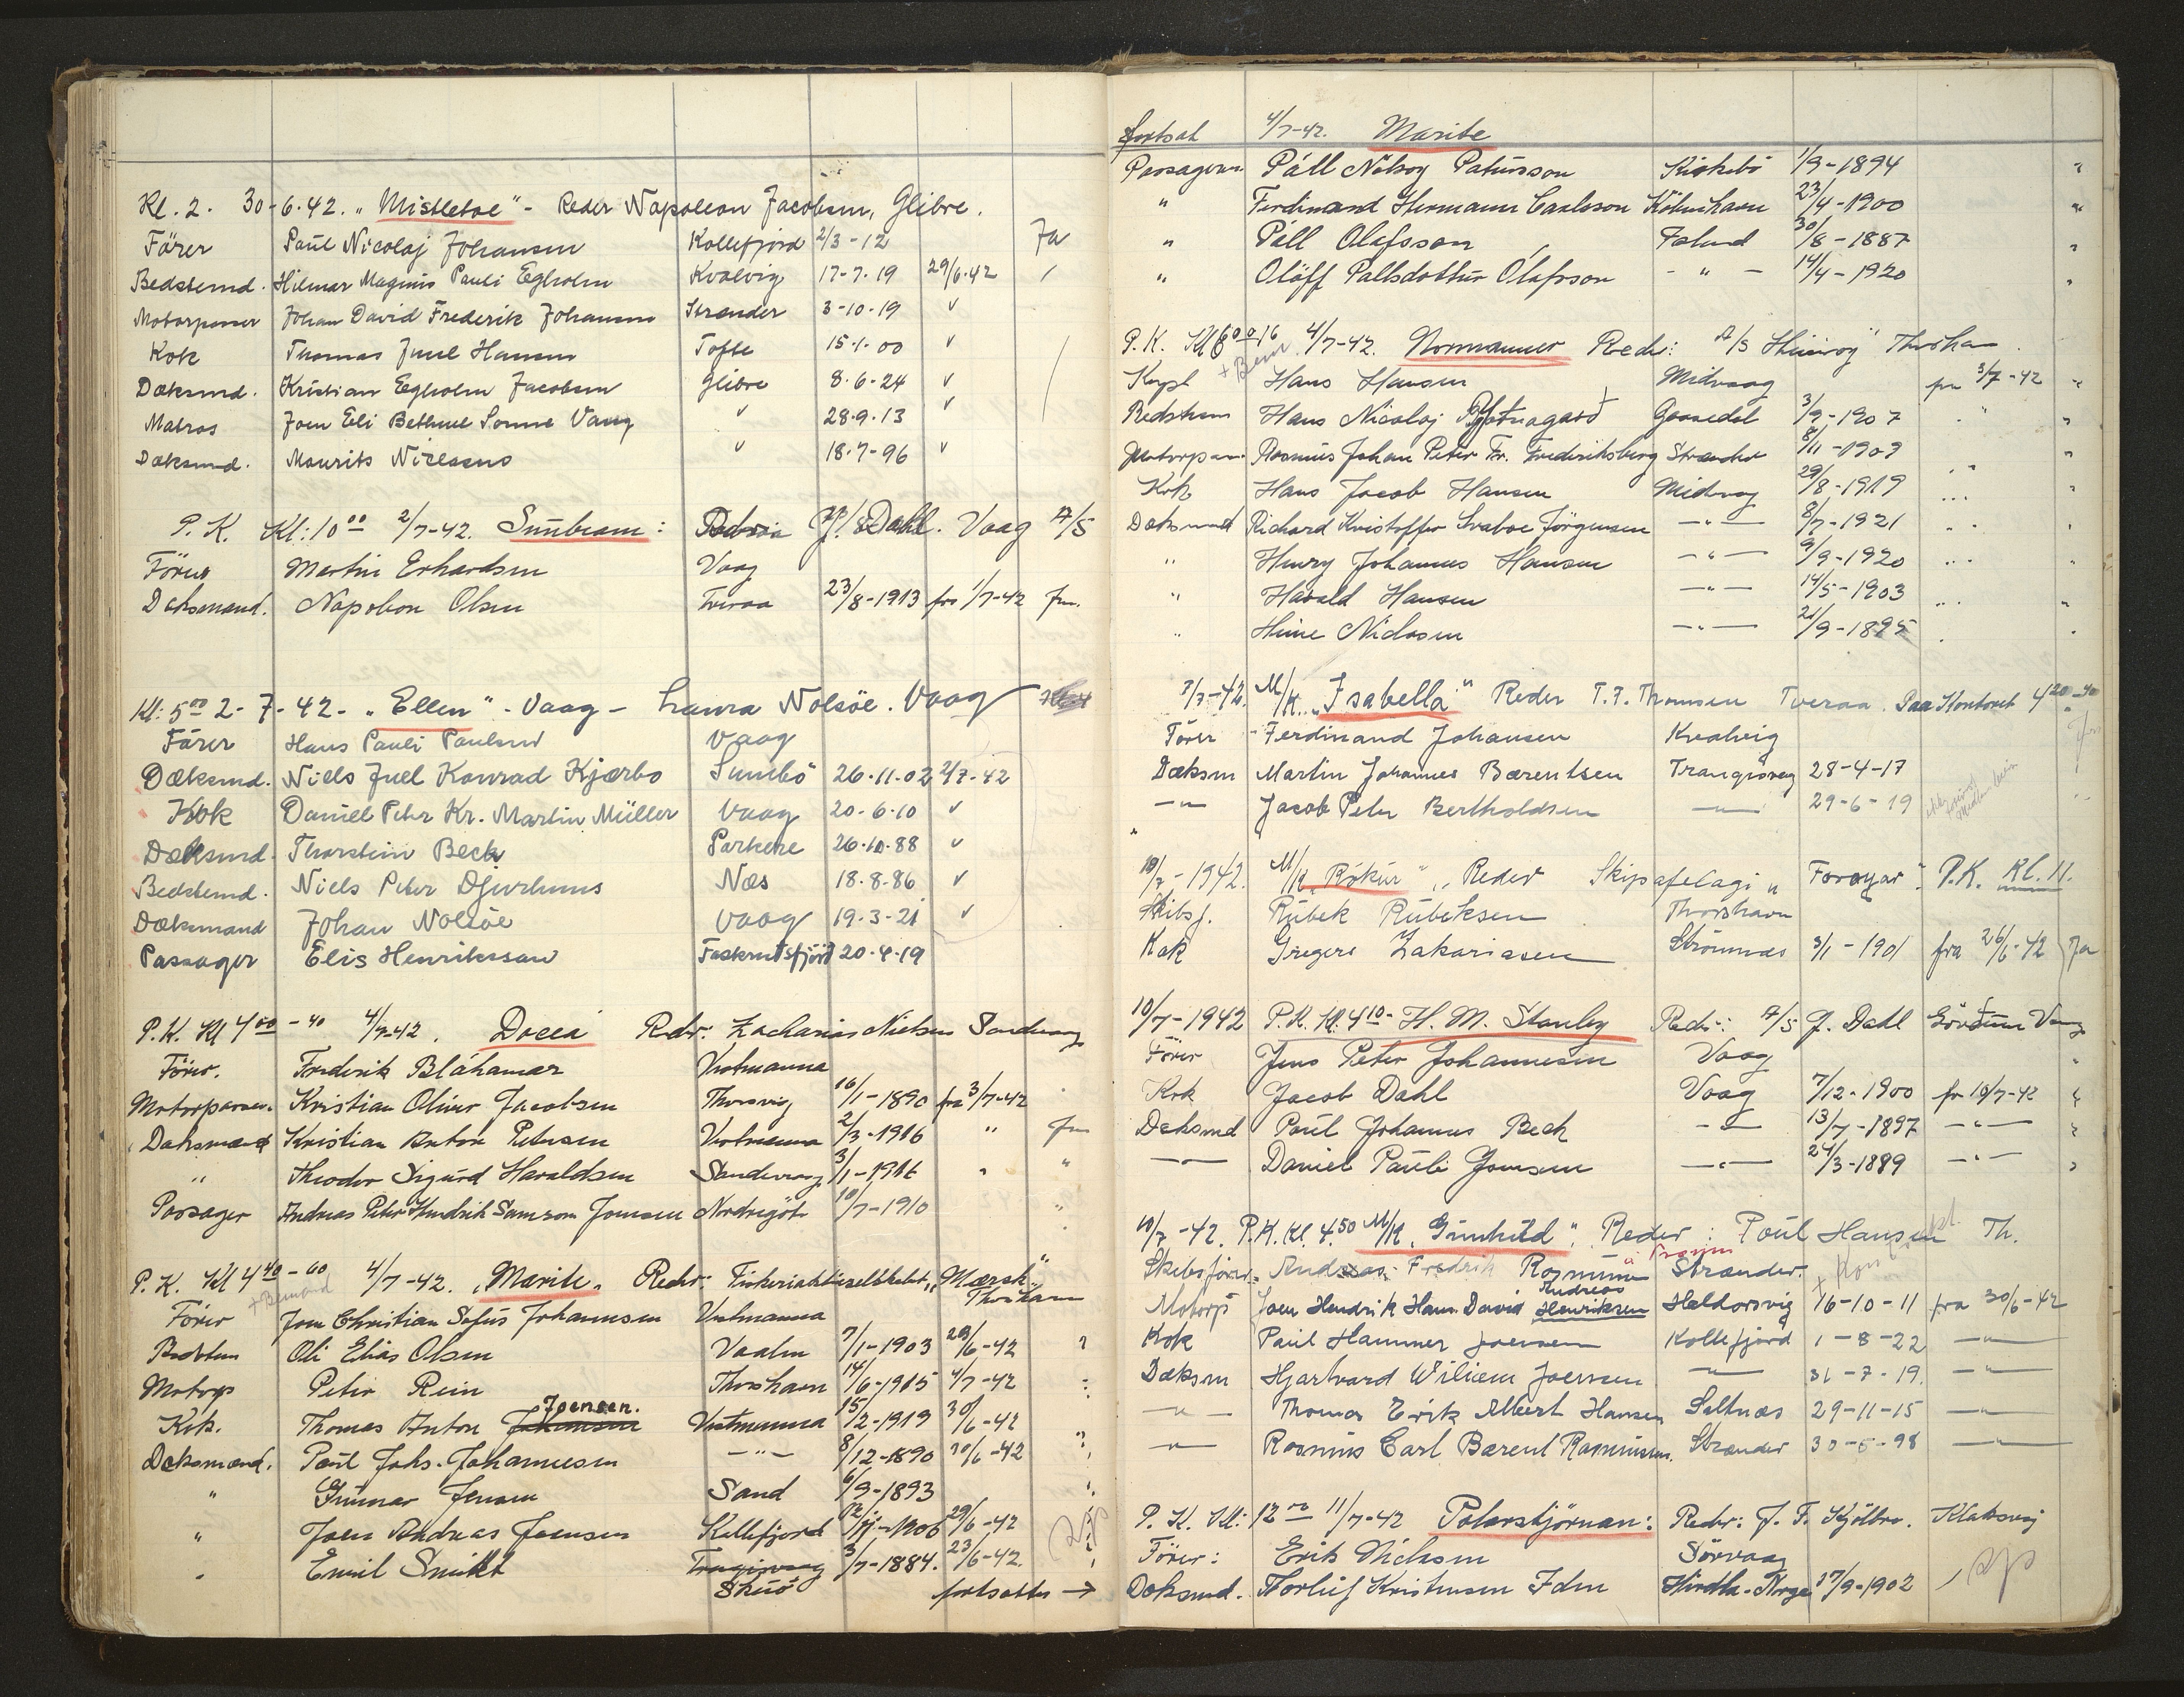 Kl. 2. 30-6-42. „Mistletoe" - Reder Napoleon Jacobsen, Glibre.
Förer Paul Nicolaj Johansen Kollefjord 2/3-12 Ja
Bedstemd. Hilmar Magnus Pauli Egholm Kvalvig 17-7-19 29/6-42
Motorpasser Johan David Frederik Johansen Strender 3-10-19 "
Kok Thomas Juul Hansen Tofte 15-1-00 "
Dæksmd. Kristian Egholm Jacobsen Glibre 8-6-24 "
Matros Joen Eli Bethuel Sonne Vang " 28-9-13 "
Dæksmd. Maurits Niclasen " 18-7-96 "
P. K. Kl: 10 00 2/7-42. Sunbeam: J. Dahl. Vaag A/S
Förer Martin Erhardsen Vaag
Dæksmand. Napoleon Olsen Tveraa 23/8-1913 fra 1/7-42
Kl: 5 00 2-7-42- „Ellen" - Vaag - Laura Nolsöe. Vaag
Förer Hans Pauli Paulsen Vaag
Dæksmd. Niels Juel Konrad Kjærbo Sumbö 26-11-02 2/7-42
Kok Daniel Peter Kr. Martin Müller Vaag 20-6-10 "
Dæksmd. Thorstein Beck Porkere 26-10-88 "
Bedstemd. Niels Peter Djurhuus Næs 18-8-86 "
Dæksmand Johan Nolsöe Vaag 19-3-21 "
Passager Elis Henriksson Faskrudsfjörd 20-4-19
P. K. Kl 4 00 - 40 4/7-42. Docea Reder: Zacharias Nielsen Sandevaag
Förer. Frederik Bláhamar Vestmanna
Motorpasser. Kristian Oliver Jacobsen Thorsvig 16/1-1890 fra 3/7-42
Dæksmand Kristian Anton Petersen Vestmanna 2/3-1916 "
" Theodor Sigurd Haraldsen Sandevaag 3/1-1916 " "
Passager Andreas Peter Hendrik Samson Joensen Nordregöte 10/7-1910 "
P. K. Kl 4 40 - 60 4/7-42. „Marite„ Reder: Fiskeriaktieselskabet „Mærsk" Thorshavn
Förer Joen Christian Sofus Johannesen Vestmanna
Bedstem Oli Elias Olsen Vaalen 7/1-1903 28/6-42
Motorp Peter Rein Thorshavn 14/6-1915 4/7-42
Kok. Thomas Anton Joensen. Vestmanna 15/2-1919 30/6-42
Dæksmand. Poul Johs. Johannesen -"- 8/12-1890 30/6-42
" Gunnar Jensen Sand 6/9-1893
" Joen Andreas Joensen Kollefjord 1906 29/6-42
" Emil Smidt Skuö 3/7-1884. 23/6-42.
fortsættes →
fortsat 4/7-42. Marite
Passagerer Páll Nólsoy Patursson Kirkebö 1/9-1894 "
" Ferdinand Hermann Carlsson Köbenhavn 23/4-1900 "
" Páll Olafsson Island 30/8-1887 "
" Olöff Pallsdottur Ólafsson -"- 14/4-1920 "
P. K. Kl 6 00 16 4/7-42. Normanner Reder: A/S Thorshavn
Kapt Hans Hansen Midvaag fra 3/7-42 "
Bedstem Hans Nicolaj Gaasedal 3/9-1907 "
Motorpas. Rasmus Johan Peter Fr. Frederiksberg Strender 8/11-1909 "
Kok Hans Jacob Hansen Midvaag 29/8-1919 "
Dæksmand Richard Kristoffer Svaboe Jörgensen -"- 8/7-1921 "
" Henry Johannes Hansen -"- 9/9-1920 "
" Harald Hansen -"- 14/5-1903 "
" Heine Niclasen -"- 21/9-1895
7/7-42. M/K. „Isabella" Reder T. F. Thomsen Tveraa. Paa Kontoret 4 20-40
Förer Ferdinand Johansen Kvalvig
Dæksm Martin Johannes Bærentsen Trangisvaag 28-4-17
-"- Jacob Peter Bertholdsen -"- 29-6-19
10/7-1942. M/K „Rókur" „Reder Skipsafelagi „Foroyar". P.K. Kl. 11.
Skibsf. Rúbek Rubeksen Thorshavn
Kok Gregers Zakariasen Strömnæs 3/1-1901 fra 26/6-42 Ja
10/7-1942 P. K. Kl. 4 10- H. M. Stanley Reder: A/S J. Dahl Vaag
Förer Jens Peter Johannesen Vaag "
Kok Jacob Dahl Vaag 7/12-1900 fr 10/7-42 "
Dæksmd Poul Johannes Beck -"- 13/7-1897 -"- "
-"- Daniel Pauli Joensen -"- 24/3-1889 -"- "
10/7-42. P.K. Kl. 4.50 M/K „Gunhild". Reder: Poul Hansen Th.
Skibsförer. Andreas Fredrik Rasmussen Strænder.
Motorp Joen Hendrik Hans David Andreas Henriksen Haldorsvig 16-10-11 fra 30/6-42
Kok Paul Hammer Joensen Kollefjord 1-8-22 -"-
Dæksm Hjartvard Wiliem Joensen -"- 31-7-19. -"-
-"- Thomas Erik Albert Hansen Saltnæs 29-11-15 -"-
-"- Rasmus Carl Barent Rasmussen. Strænder 30-5-98 -"-
P. K. Kl: 12 00 11/7-42 Polarstjörnan: Reder: J. F. Kjölbro. Klaksvig
Förer: Erik Nielsen Sörvaag
Dæksmd. Torleif Kristensen Hirdla-Norge 17/9-1902